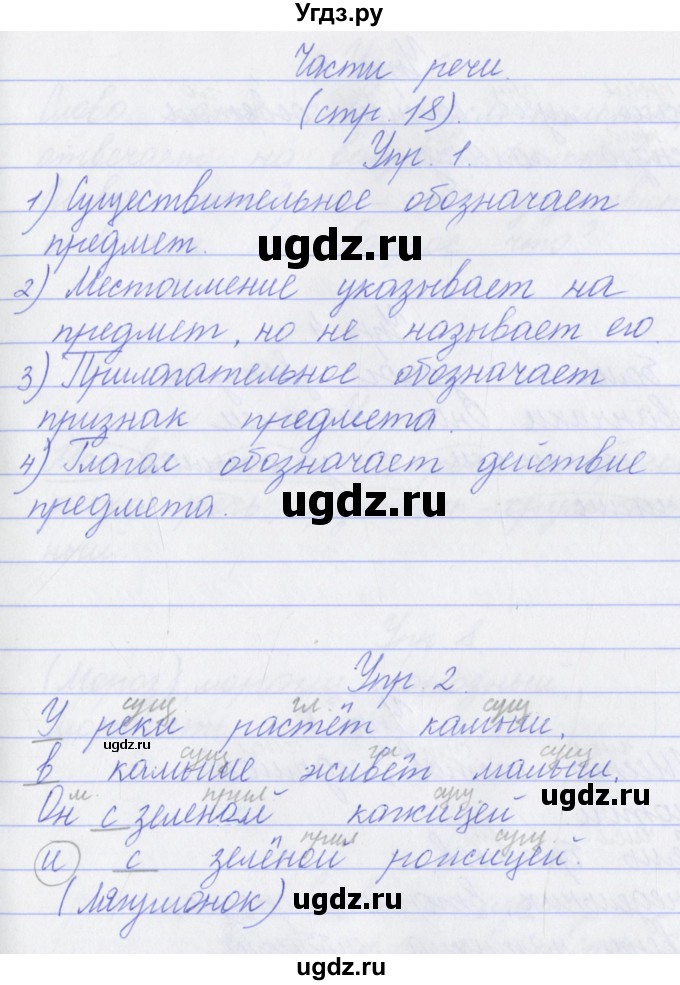 Угдз.ру
Части речи.
(стр. 18).
Упр. 1.
1) Существительное обозначает
предмет.
ugdz.ru
2) Местоимение указывает на
предмет, но не называет его.
3) Прилагательное обозначает
признак предмета.
4) Глагол обозначает действие
предмета.
ugdz.ru
Упр. 2.
сущ гл. сущ
У реки растёт камыш,
ugdz.ru
сущ гл сущ
в камыше живёт малыш,
ugdz.ru
м. прил сущ
Он с зеленой кожицей
прил сущ.
и с зелёной рожицей.
(Лягушонок)
ugdz.ru
ugdz.ru